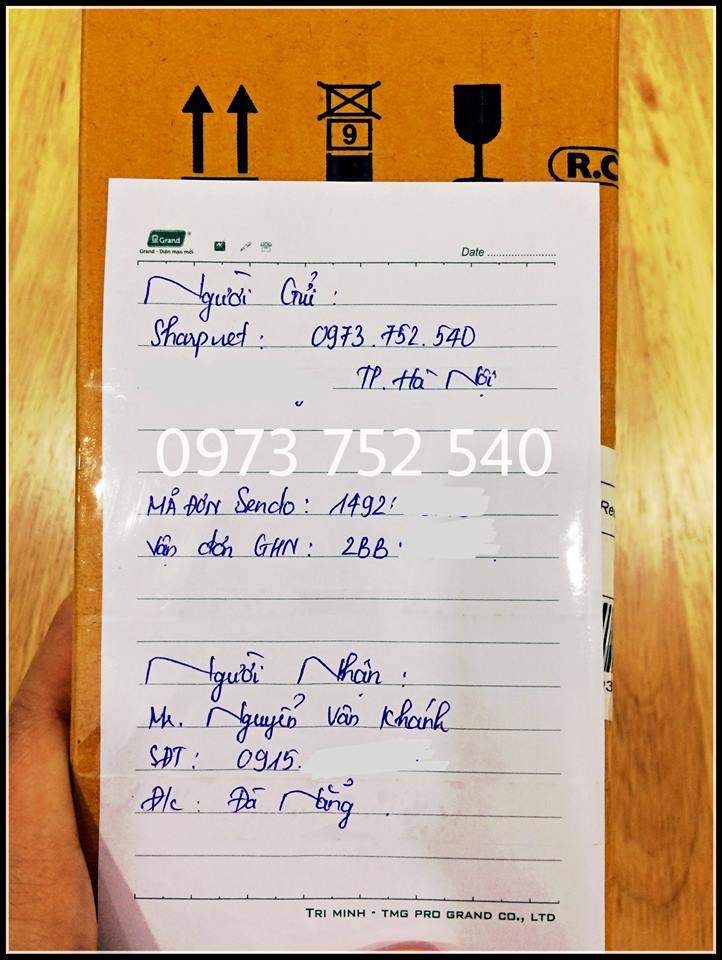 9
R.C
Grand
Grand - Diện mạo mới
Date
Người Gửi :
Sharpnet : 0973.752.540
TP. Hà Nội
0973 752 540
MÃ ĐƠN Sendo : 1492
Vận đơn GHN : 2BB
Re
Người Nhận :
Mr. Nguyễn Văn Khánh
SĐT : 0915.
Đ/c : Đà Nẵng .
TRI MINH - TMG PRO GRAND CO., LTD